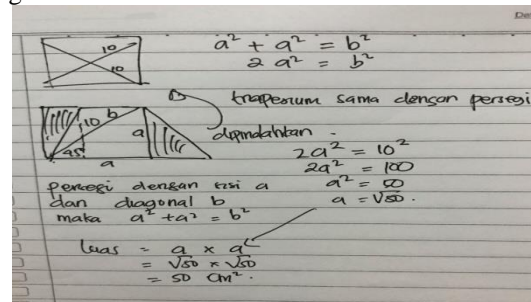 10
10
a² + a² = b²
2 a² = b²
trapesium sama dengan persegi
dipindahkan
10 b
a
45
a
2a² = 10²
2a² = 100
a² = 50
a = √50.
persegi dengan sisi a
dan diagonal b
maka a² + a² = b²
luas = a × a
= √50 × √50
= 50 cm².